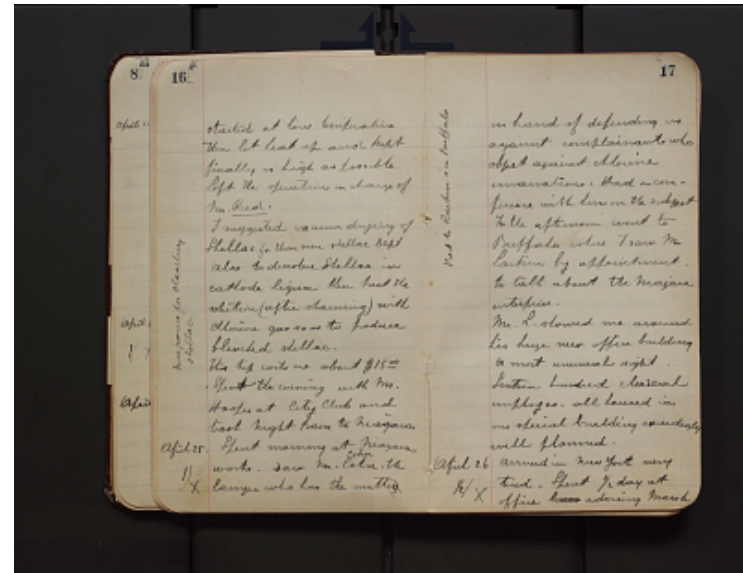 8
April
April
1/
April
16
started at low temperature
then let heat up and kept
finally as high as possible
left the operation in charge of
Mr. Reed.
I suggested vacuum drying of
Shellac for their new shellac Dept
also to dissolve Shellac in
cathode liquor then treat the
solution (after straining) with
chlorine gas so as to produce
bleached shellac.
This trip costs me about $15
Spent the evening with Mr.
Hooper at City Club and
took night train to Niagara
April 25. Spent morning at Niagara
1/X works. Saw Mr. Cohn the
lawyer who has the matter
for bleaching
shellac
17
in hand of defending us
against complainants who
object against chlorine
emanations. Had a con-
ference with him on the subject
In the afternoon went to
Buffalo where I saw Mr
Larkin by appointment
to talk about the Niagara
enterprise.
Mr. L. showed me around
his huge new office building
a most unusual sight.
hundred clerical
employees all housed in
one special building exceedingly
well planned.
April 26 arrived in New York very
1/2/X tired. Spent 1/2 day at
office advising Marsh
Visit to Larkin in Buffalo